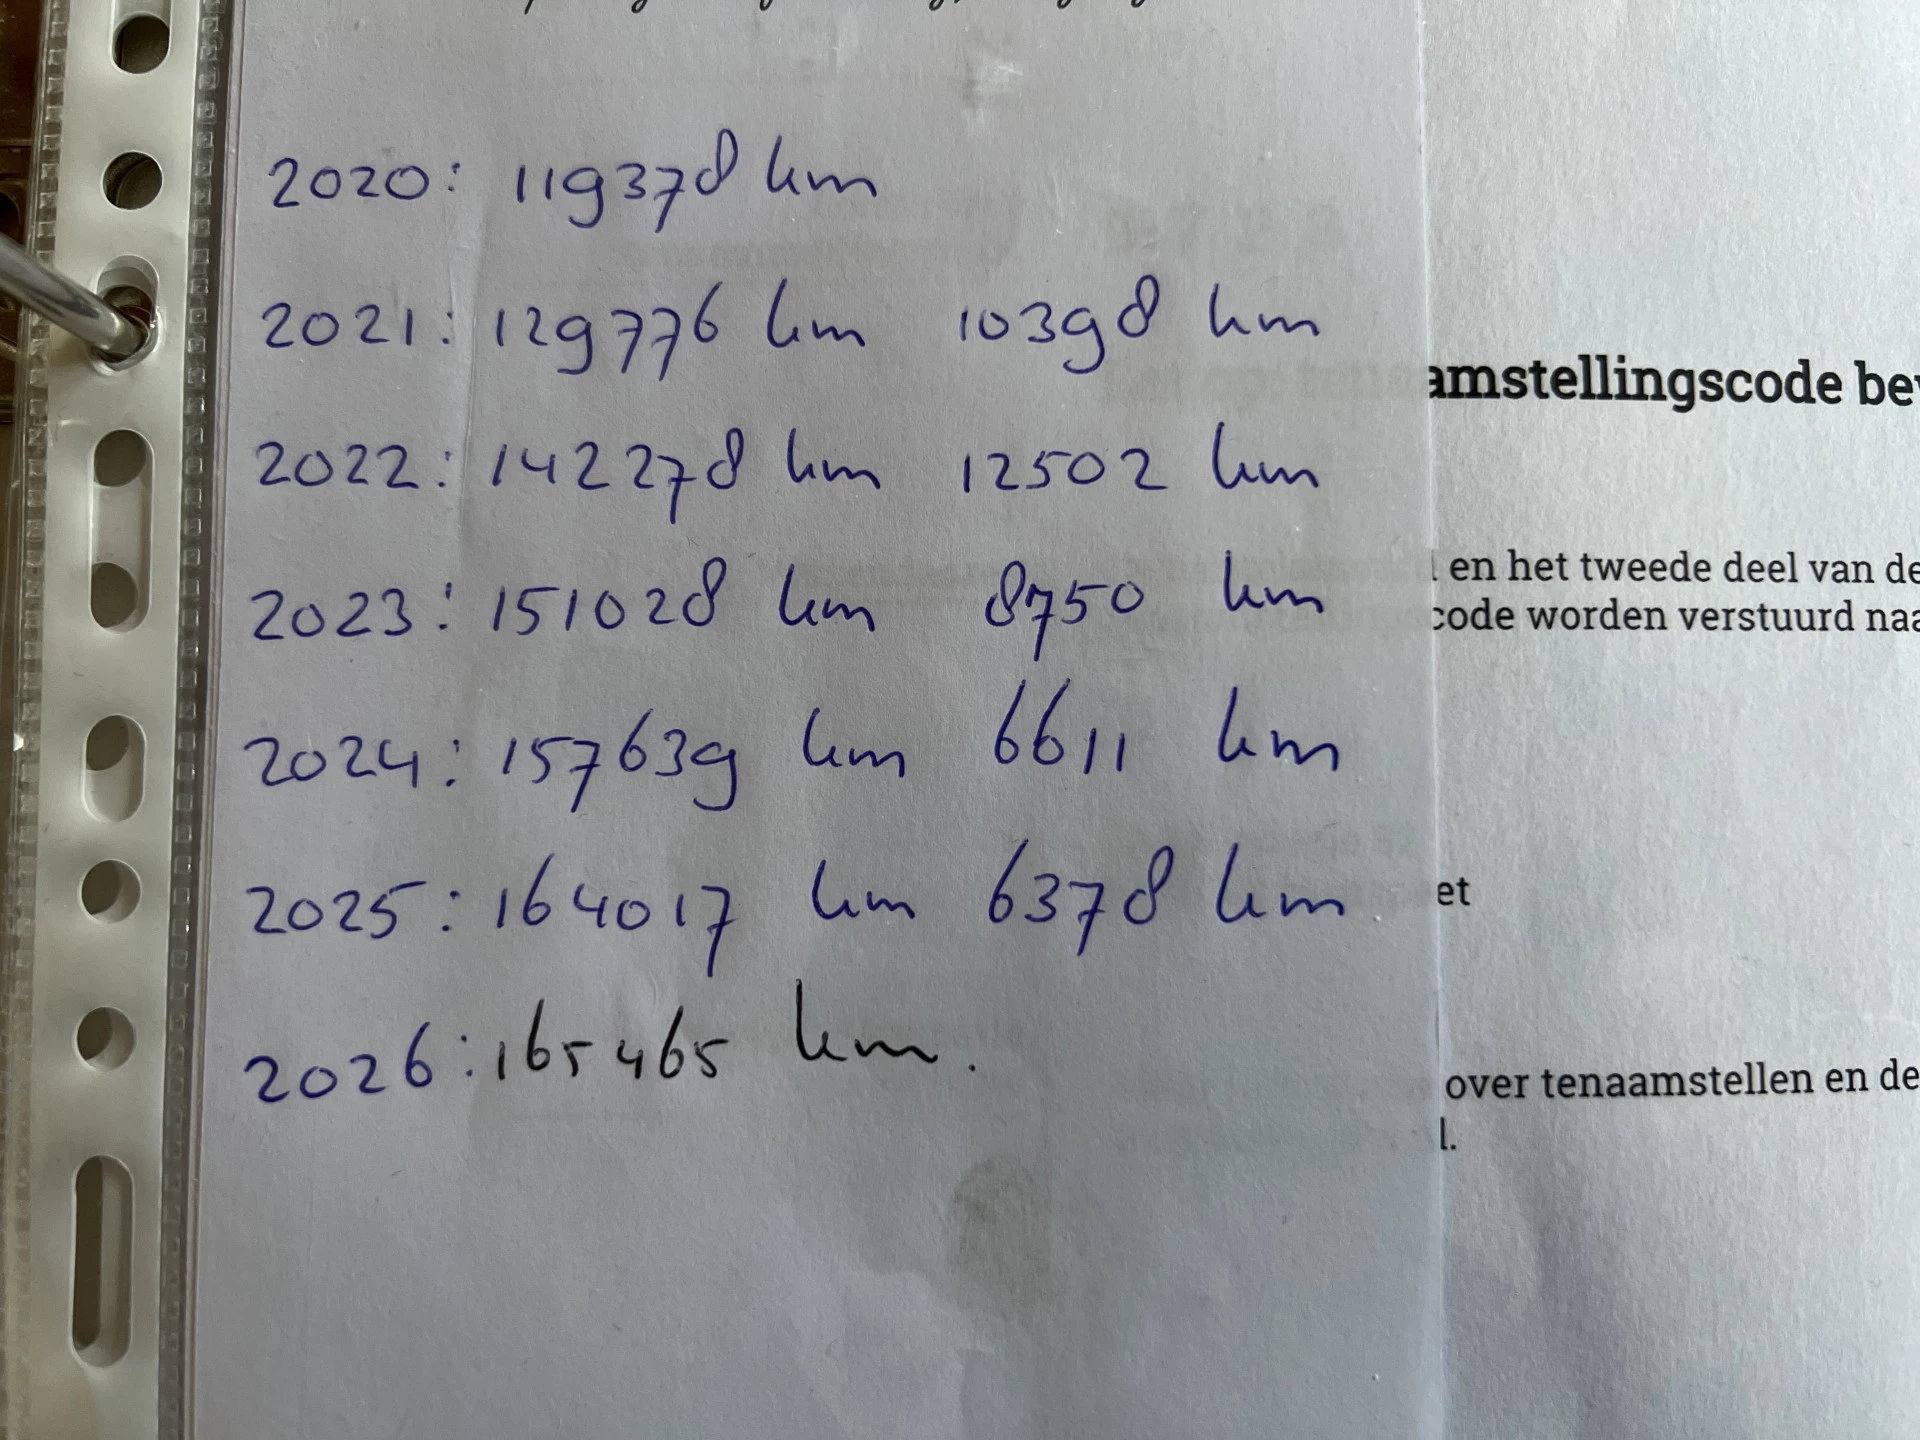 2020: 119378 km
2021: 129776 km 10398 km
amstellingscode be
2022: 142278 km 12502 km
en het tweede deel van de
2023: 151028 km 8750 km
code worden verstuurd naa
2024: 157639 km 6611 km
2025: 164017 km 6378 km
et
2026: 165465 km.
over tenaamstellen en de
l.